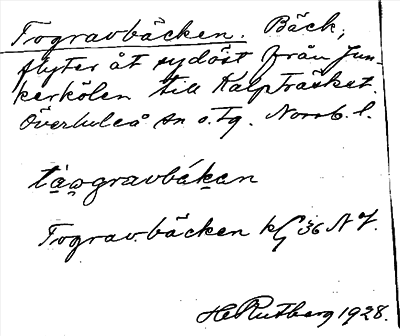 Togravbäcken. Bäck,
flyter åt sydöst från Jun-
kerkölen till Kalpträsket.
Överluleå sn o. Tg. Norrb. l.
tạ̀ọgravbákạn
Togravbäcken kG 36 NV.
H. Rutberg 1928.